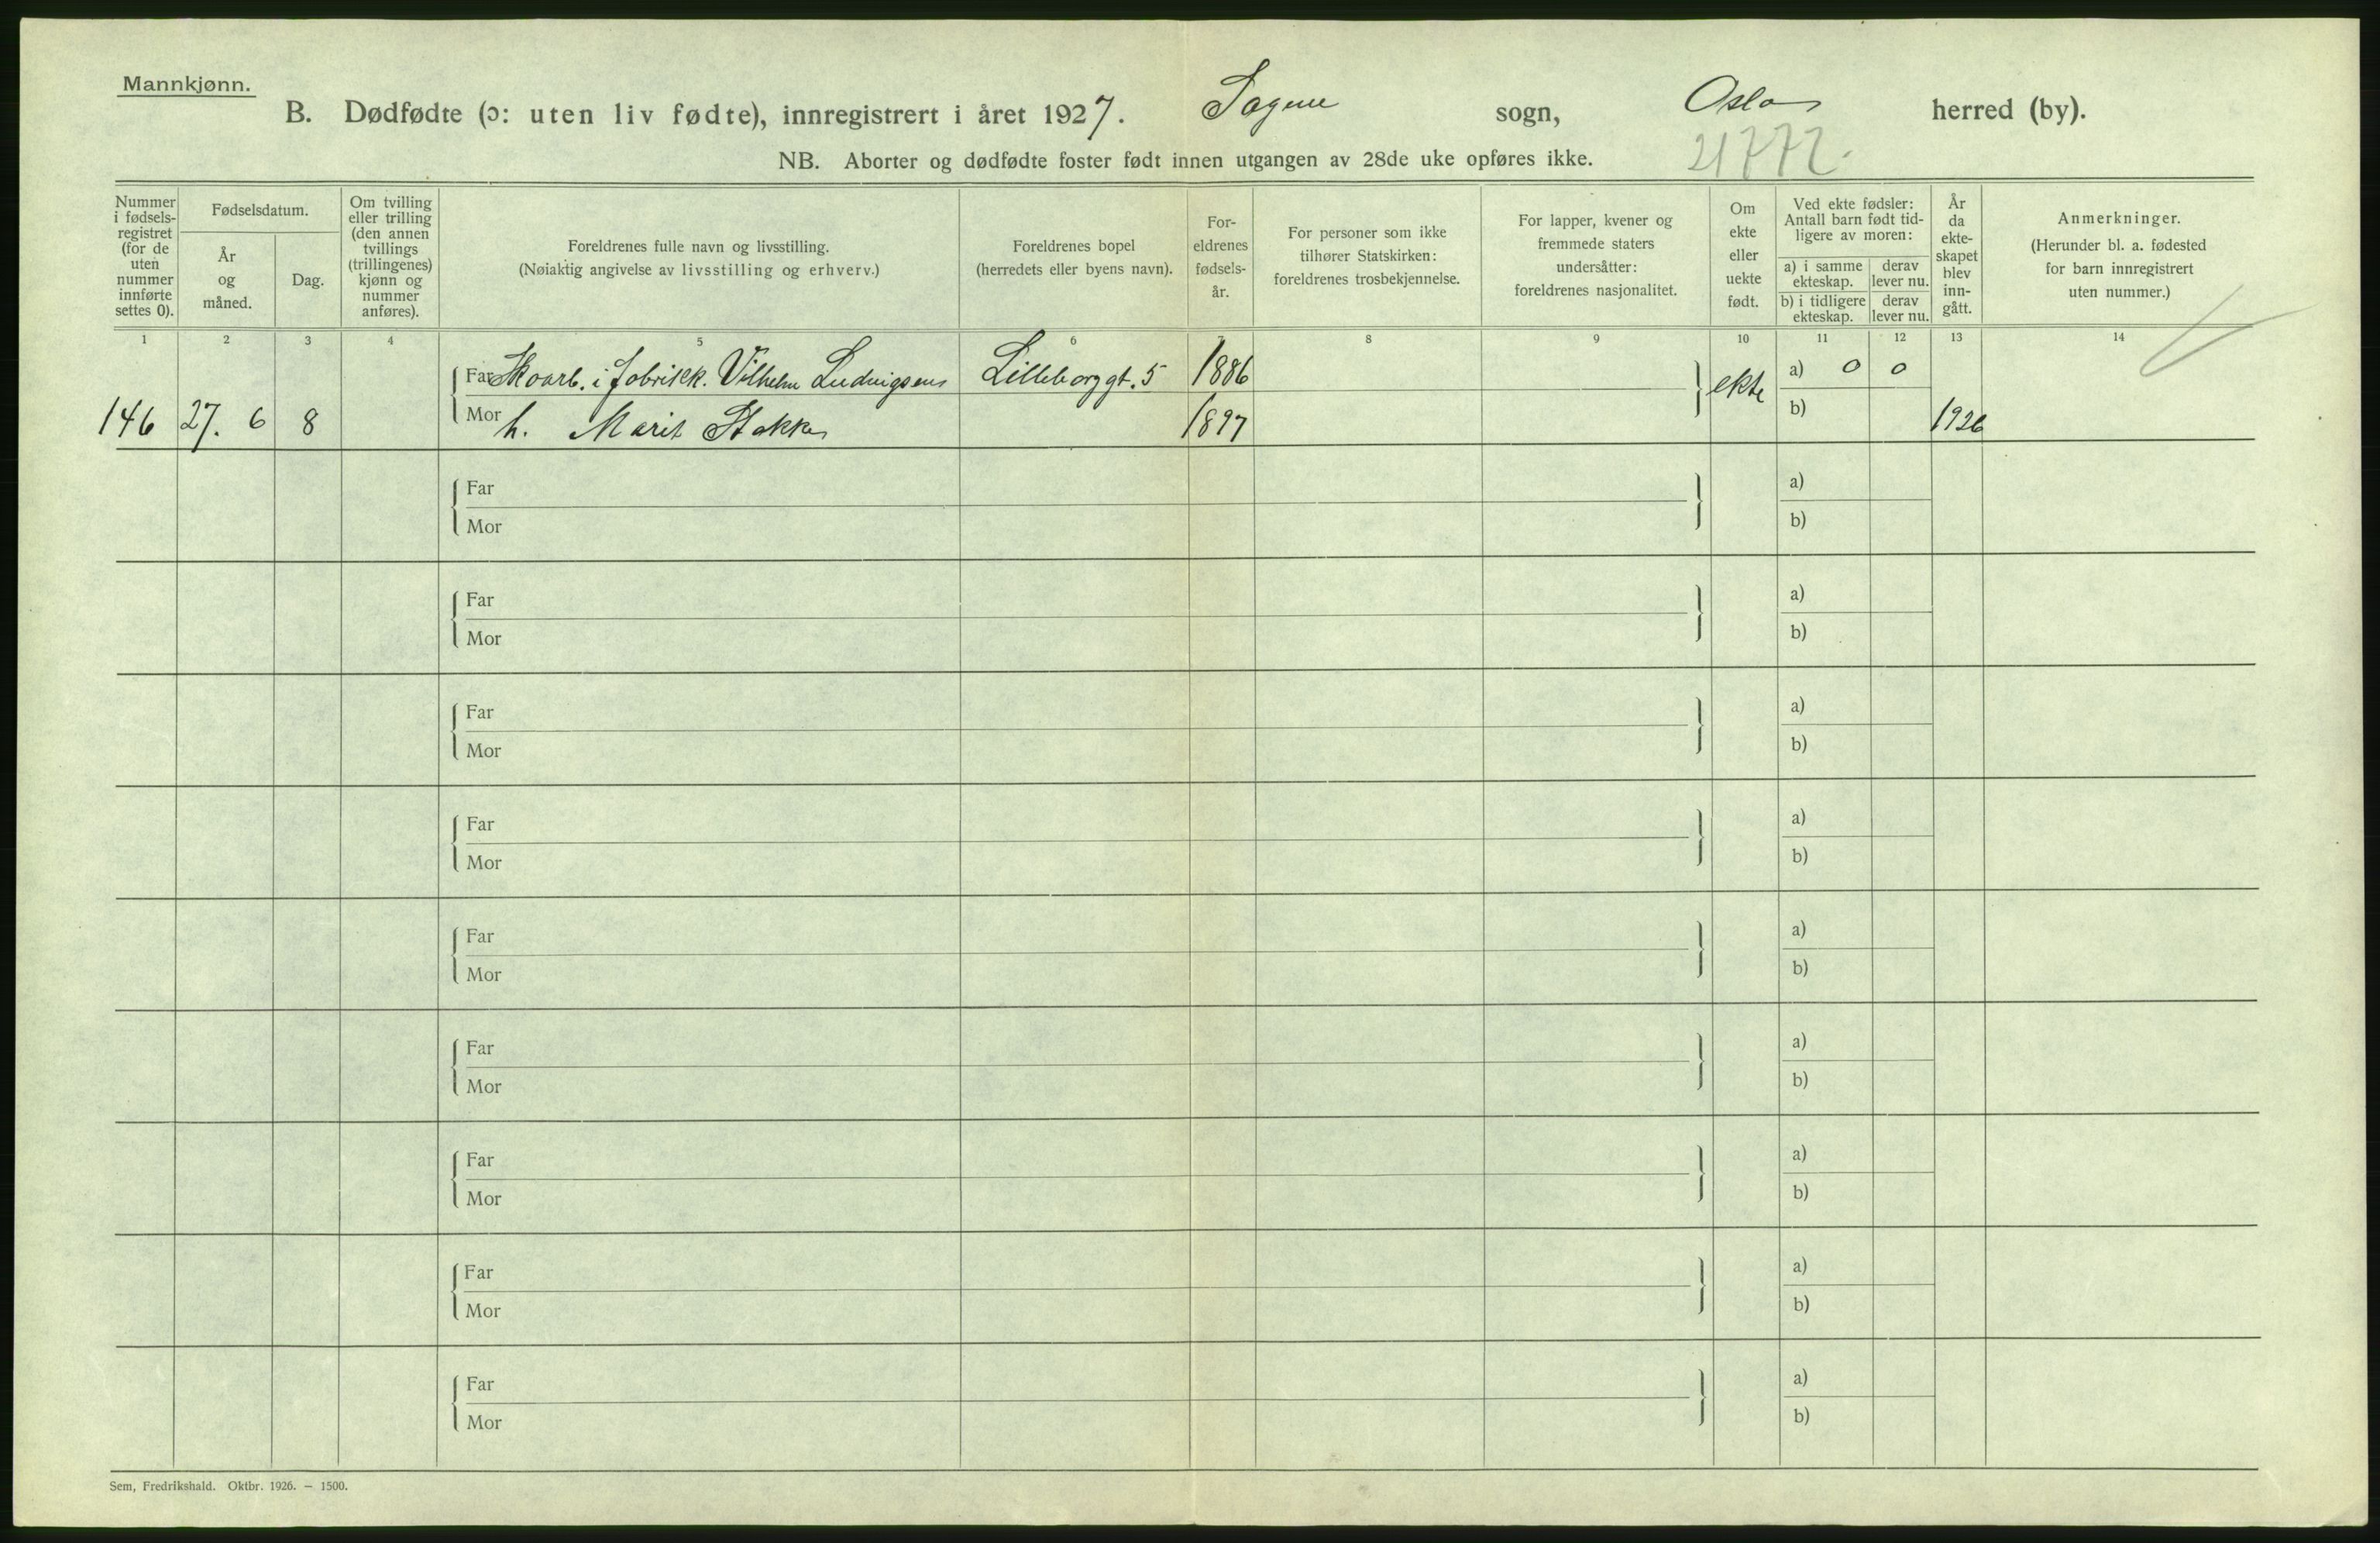 Mannkjønn.
B. Dødfødte (ɔ: uten liv fødte), innregistrert i året 1927. Sagene sogn, Oslo herred (by).
NB. Aborter og dødfødte foster født innen utgangen av 28de uke opføres ikke. 21772.
Nummer i fødsels-registret (for de uten nummer innførte settes 0).
Fødselsdatum.
År og måned.
Dag.
Om tvilling eller trilling (den annen tvillings (trillingenes) kjønn og nummer anføres).
Foreldrenes fulle navn og livsstilling.
(Nøiaktig angivelse av livsstilling og erhverv.)
Foreldrenes bopel
(herredets eller byens navn).
For-eldrenes fødsels-år.
For personer som ikke tilhører Statskirken: foreldrenes trosbekjennelse.
For lapper, kvener og fremmede staters undersåtter: foreldrenes nasjonalitet.
Om ekte eller uekte født.
Ved ekte fødsler: Antall barn født tid-ligere av moren:
a) i samme ekteskap. derav lever nu.
b) i tidligere ekteskap. derav lever nu.
År da ekte-skapet blev inn-gått.
Anmerkninger.
(Herunder bl. a. fødested for barn innregistrert uten nummer.)
1 2 3 4 5 6 7 8 9 10 11 12 13 14
Far Skoarb. i fabrikk. Vilhelm Ludvigsen Lilleborggt. 5 1886 ekte a) 0 0
146 27. 6 8 Mor h. Marit Stokke 1897 b) 1926
Far a)
Mor b)
Far a)
Mor b)
Far a)
Mor b)
Far a)
Mor b)
Far a)
Mor b)
Far a)
Mor b)
Far a)
Mor b)
Far a)
Mor b)
Far a)
Mor b)
Sem, Fredrikshald. Oktbr. 1926. — 1500.